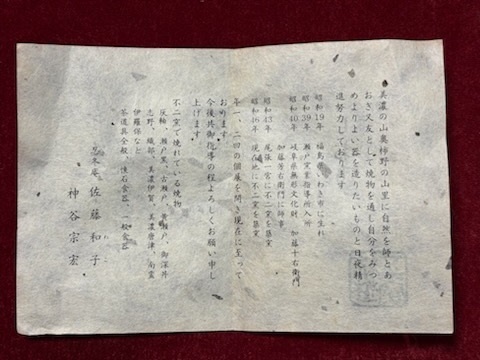 美濃の山奥柿野の山里に自然を師とあ
おぎ又友として焼物を通し自分をみつ
めよりよい器を造りたいものと日夜精
進努力しております
昭和19年 福島県いわき市に生れ
昭和39年 瀬戸窯業指導所入所
昭和40年 岐阜県無形文化財 加藤十右衛門
加藤芳右衛門に師事
昭和43年 尾張一宮に不二窯を築窯
昭和46年 現在地に不二窯を築窯
年一、二回の個展を開き現在に至って
おります
今後共御指導の程よろしくお願い申し
上げます
不二窯で焼れている焼物
灰釉、瀬戸黒、古瀬戸、黄瀬戸、御深井
志野、織部、美濃伊賀、美濃唐津、南蛮
伊羅保など
茶道具全般、懐石食器、一般食器
佐藤和子
神谷宗宏